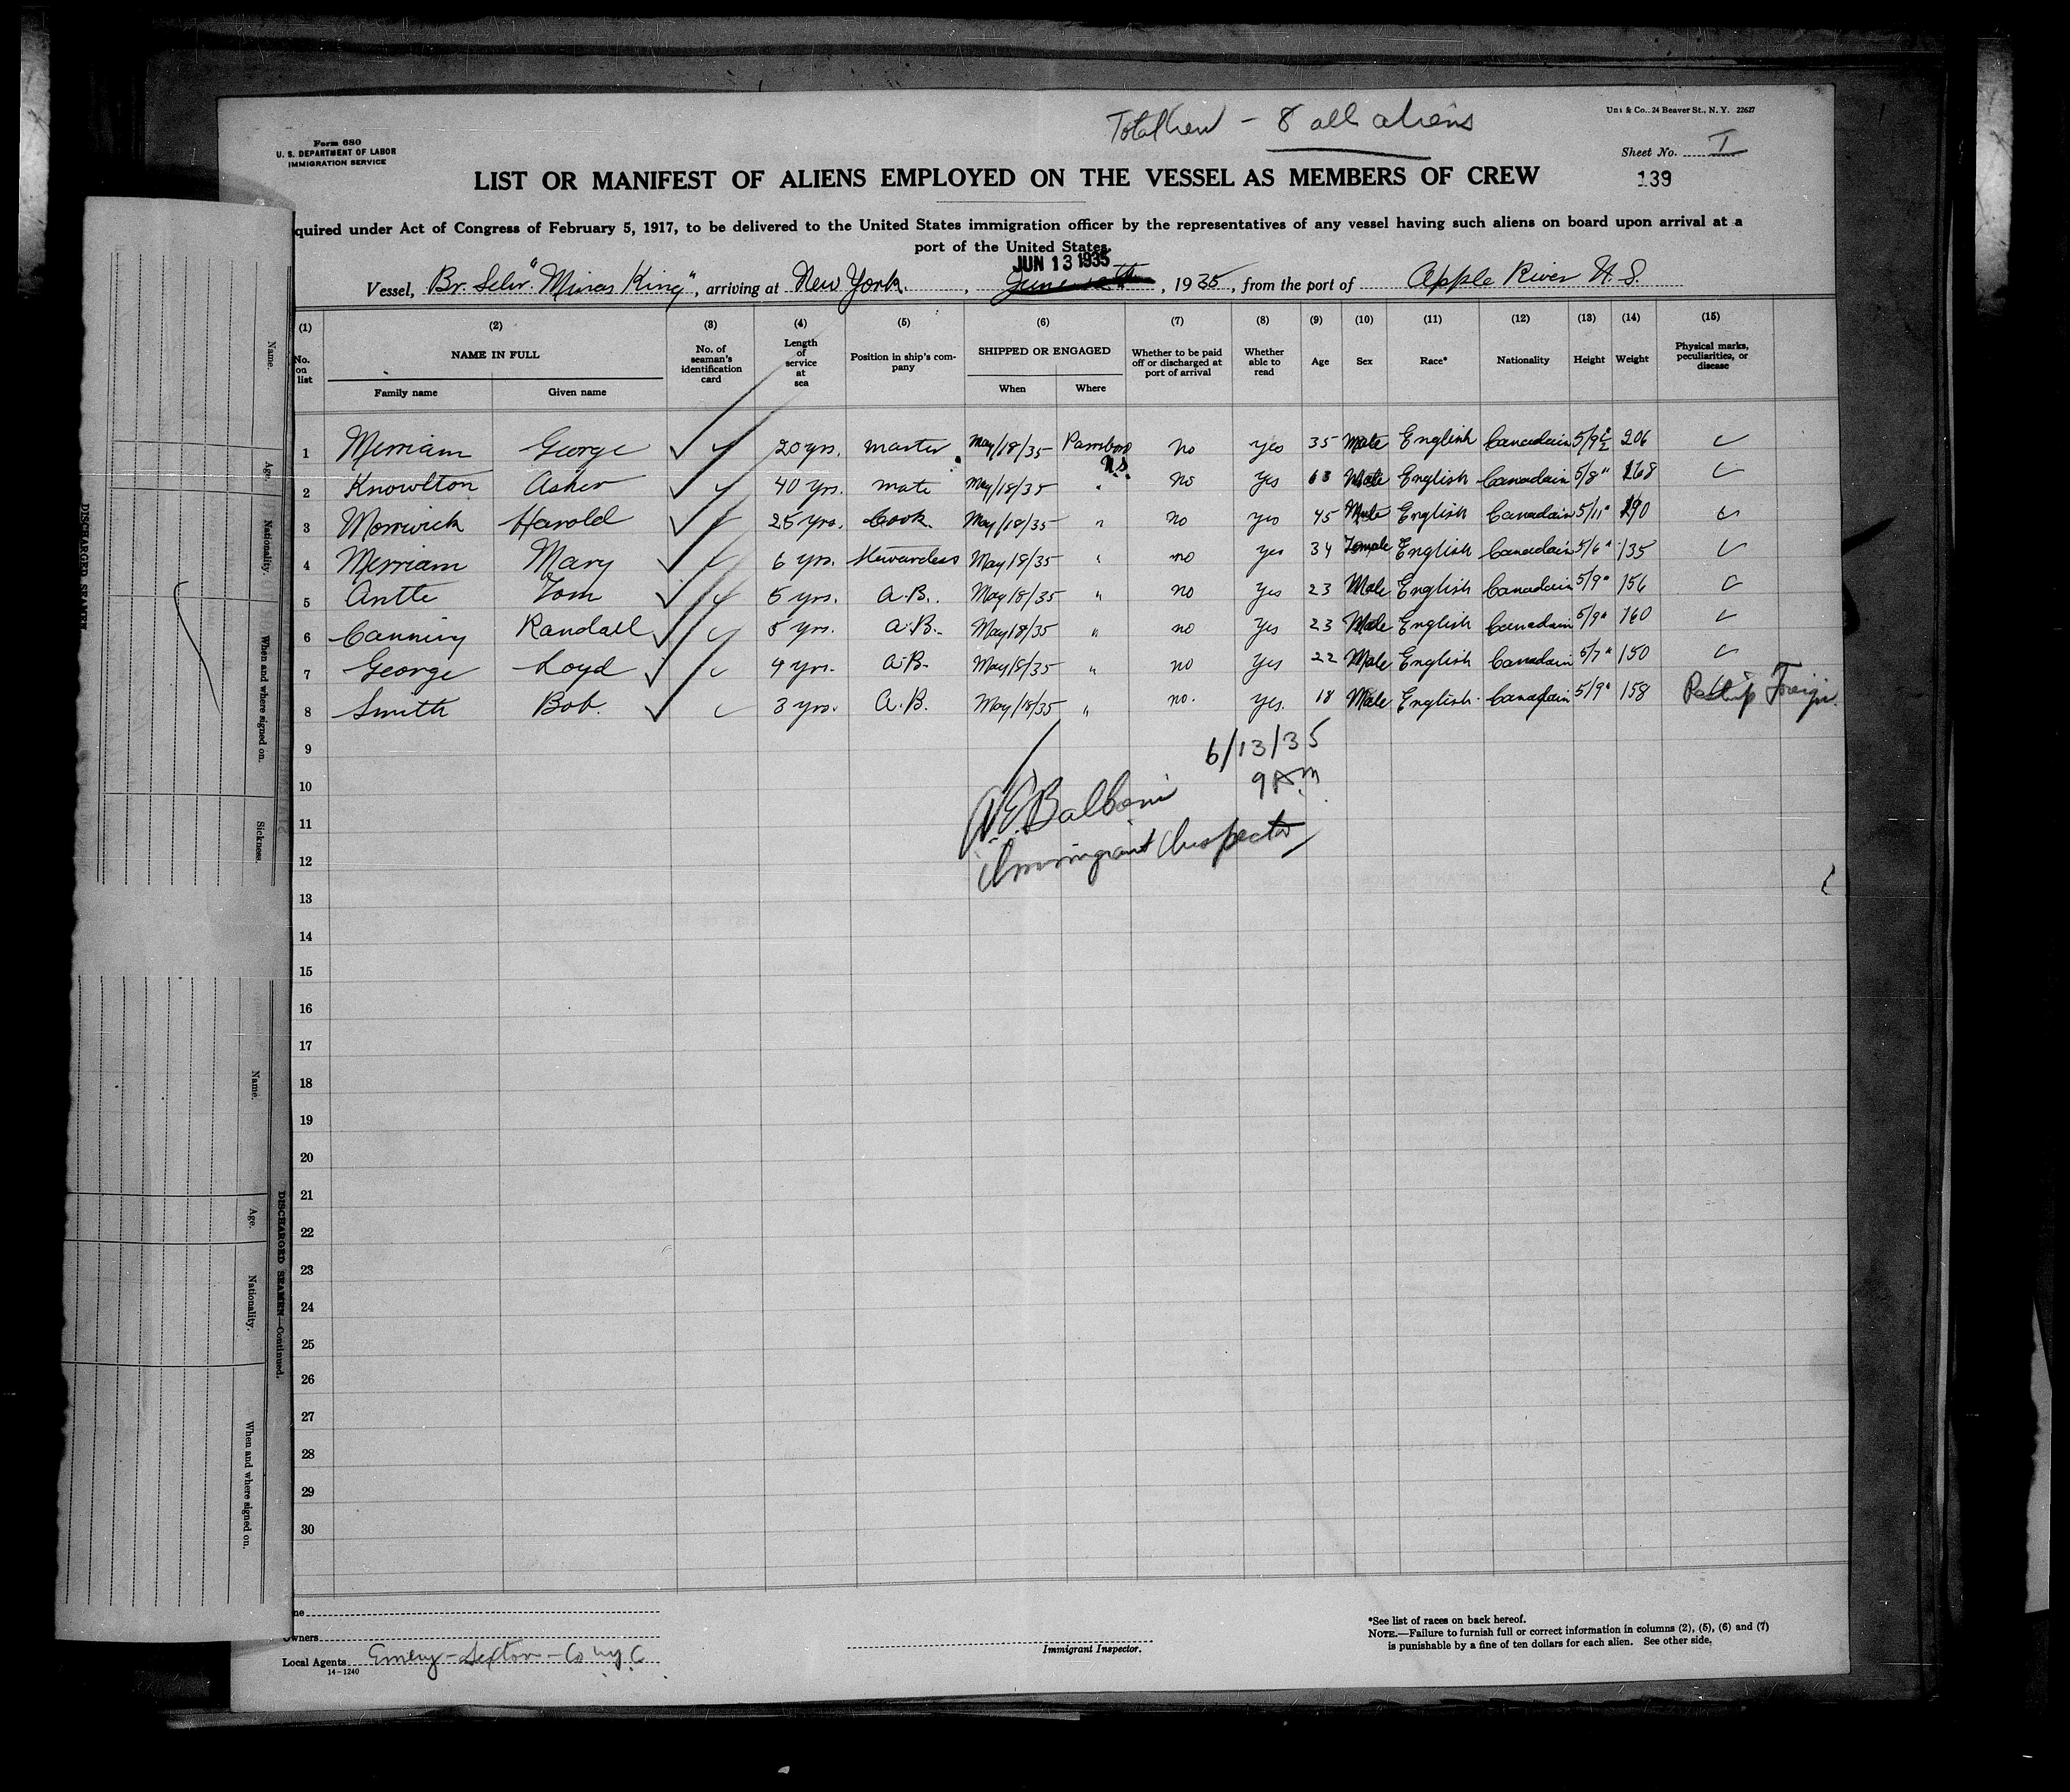 Total Crew - 8 all aliens
& Co., 24 Beaver St., N. Y. 22627
Form 680
U. S. DEPARTMENT OF LABOR
IMMIGRATION SERVICE
Sheet No. I
LIST OR MANIFEST OF ALIENS EMPLOYED ON THE VESSEL AS MEMBERS OF CREW
139
quired under Act of Congress of February 5, 1917, to be delivered to the United States immigration officer by the representatives of any vessel having such aliens on board upon arrival at a
port of the United States.
JUN 13 1935
Vessel, Br. Schr "Minas King", arriving at New York, June, 1935, from the port of Apple River N.S.
(1) (2) (3) (4) (5) (6) (7) (8) (9) (10) (11) (12) (13) (14) (15)
No. on list NAME IN FULL Family name Given name No. of seaman's identification card Length of service at sea Position in ship's company SHIPPED OR ENGAGED When Where Whether to be paid off or discharged at port of arrival Whether able to read Age Sex Race* Nationality Height Weight Physical marks, peculiarities, or disease
1 Merriam George ✓ ✓ 20 yrs. master May/18/35 Parrsboro N.S. no yes 35 Male English Canadain 5/9½" 206 ✓
2 Knowlton Asher ✓ ✓ 40 yrs. mate May/18/35 " no yes 63 Male English Canadain 5/8" 168 ✓
3 Morwick Harold ✓ ✓ 25 yrs. Cook. May/18/35 " no yes 45 Male English Canadain 5/11" 190 ✓
4 Merriam Mary ✓ ✓ 6 yrs. Stewardess May 18/35 " no yes 34 Female English Canadain 5/6" 135 ✓
5 Antle Tom ✓ ✓ 5 yrs. A.B. May 18/35 " no yes 23 Male English Canadain 5/9" 156 ✓
6 Canning Randall ✓ ✓ 5 yrs. A.B. May 18/35 " no yes 23 Male English Canadain 5/9" 160 ✓
7 George Loyd ✓ ✓ 4 yrs. A.B. May 18/35 " no yes 22 Male English Canadain 5/7" 150 ✓
8 Smith Bob. ✓ ✓ 3 yrs. A.B. May/18/35 " no. yes. 18 Male English Canadain 5/9" 158 Foreign.
9
10
11
12
13
14
15
16
17
18
19
20
21
22
23
24
25
26
27
28
29
30
6/13/35
9 A.m.
A.E. Balboni
Immigrant Inspector
Owners
Local Agents Emery-Sexton-Co NYC
14-1240
Immigrant Inspector.
*See list of races on back hereof.
NOTE.—Failure to furnish full or correct information in columns (2), (5), (6) and (7)
is punishable by a fine of ten dollars for each alien. See other side.
DISCHARGED SEAMEN
Name.
Age.
Nationality.
When and where signed on.
Sickness.
DISCHARGED SEAMEN—Continued.
Name.
Age.
Nationality.
When and where signed on.